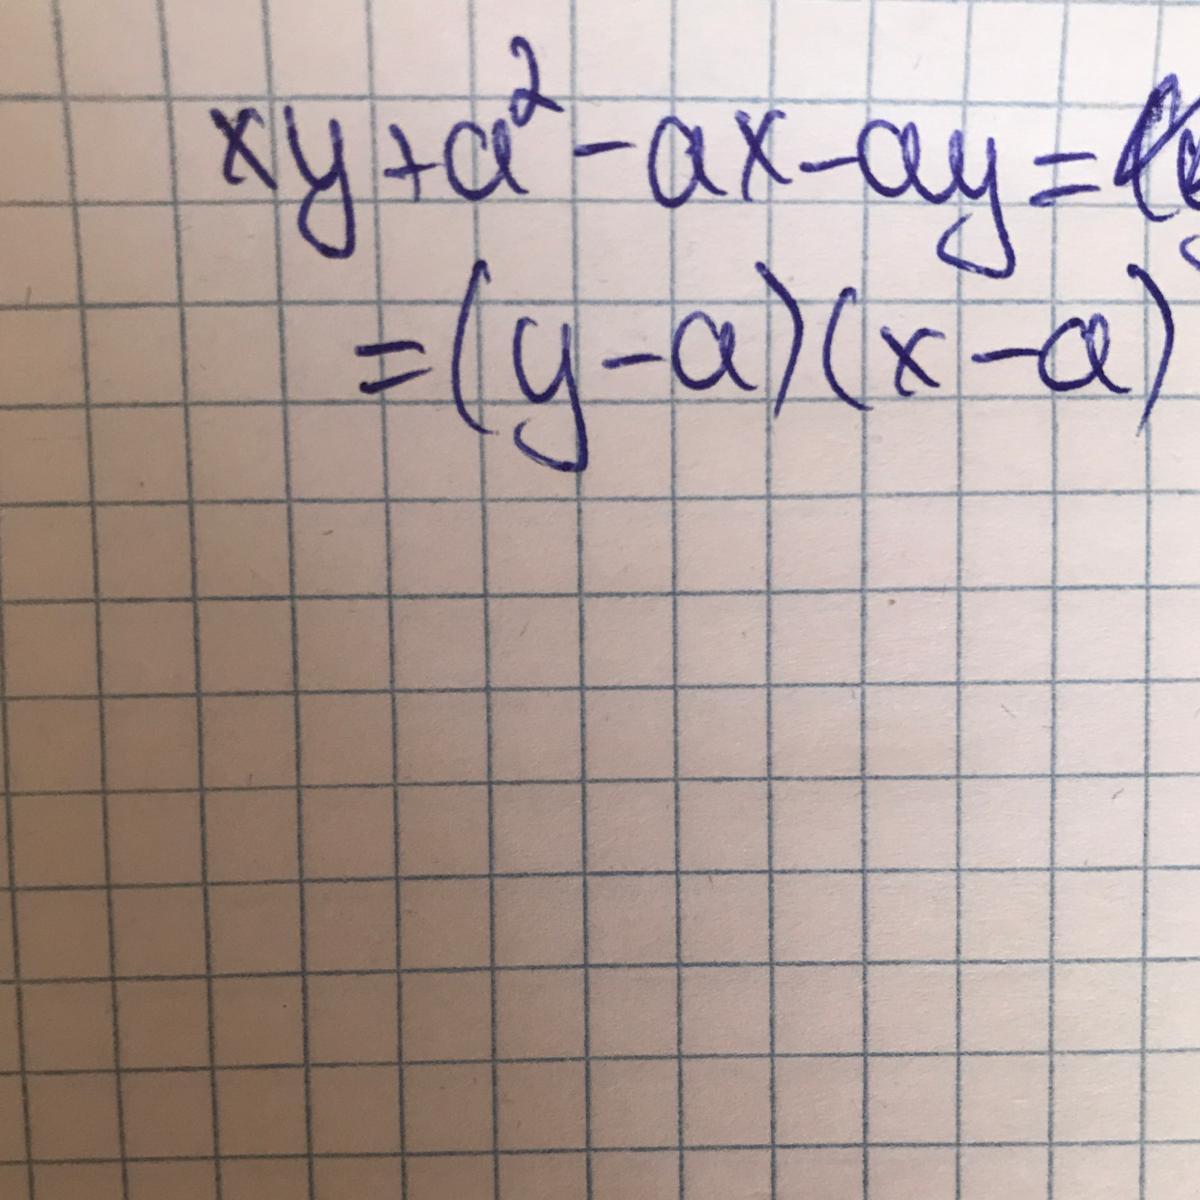 xy+a²-ax-ay=
=(y-a)(x-a)